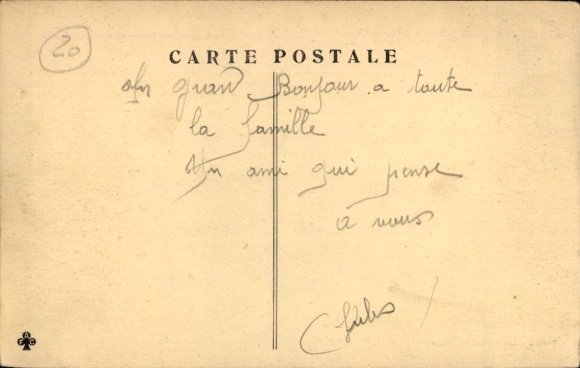 20
CARTE POSTALE
Un grand Bonjour a toute
la famille
Un ami qui pense
à vous
Jules